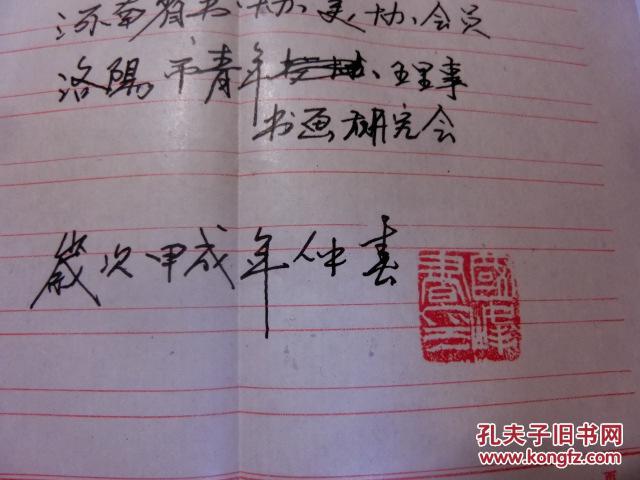 河南省书协、美协、会员
洛陽市青年、理事
书画研究会
歲次甲戌年仲春
孔夫子旧书网
www.kongfz.com